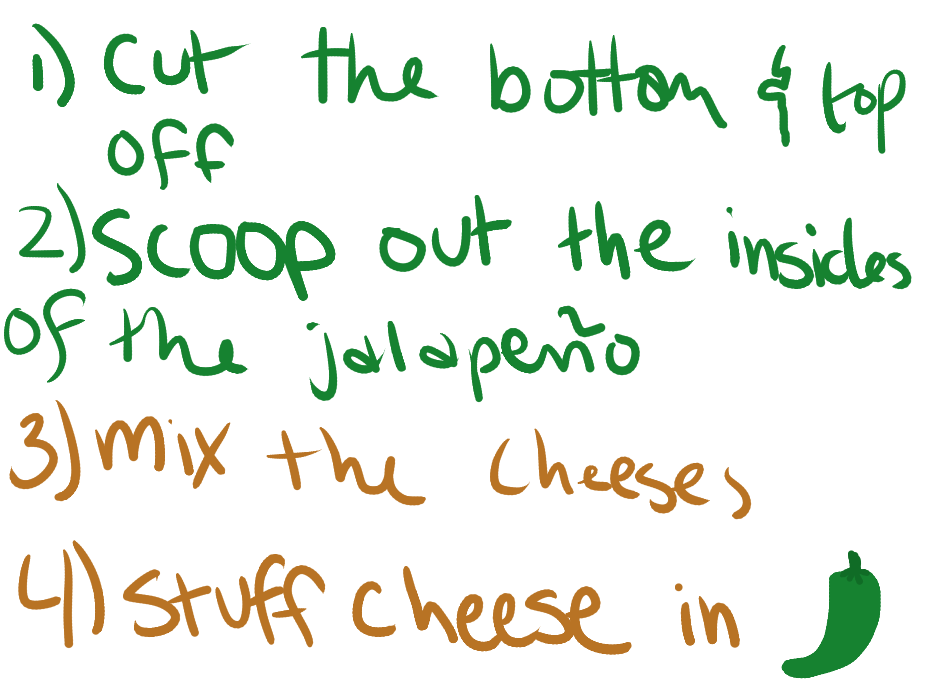 1) Cut the bottom & top
off
2) Scoop out the insides
of the jalapeño
3) mix the cheeses
4) Stuff cheese in